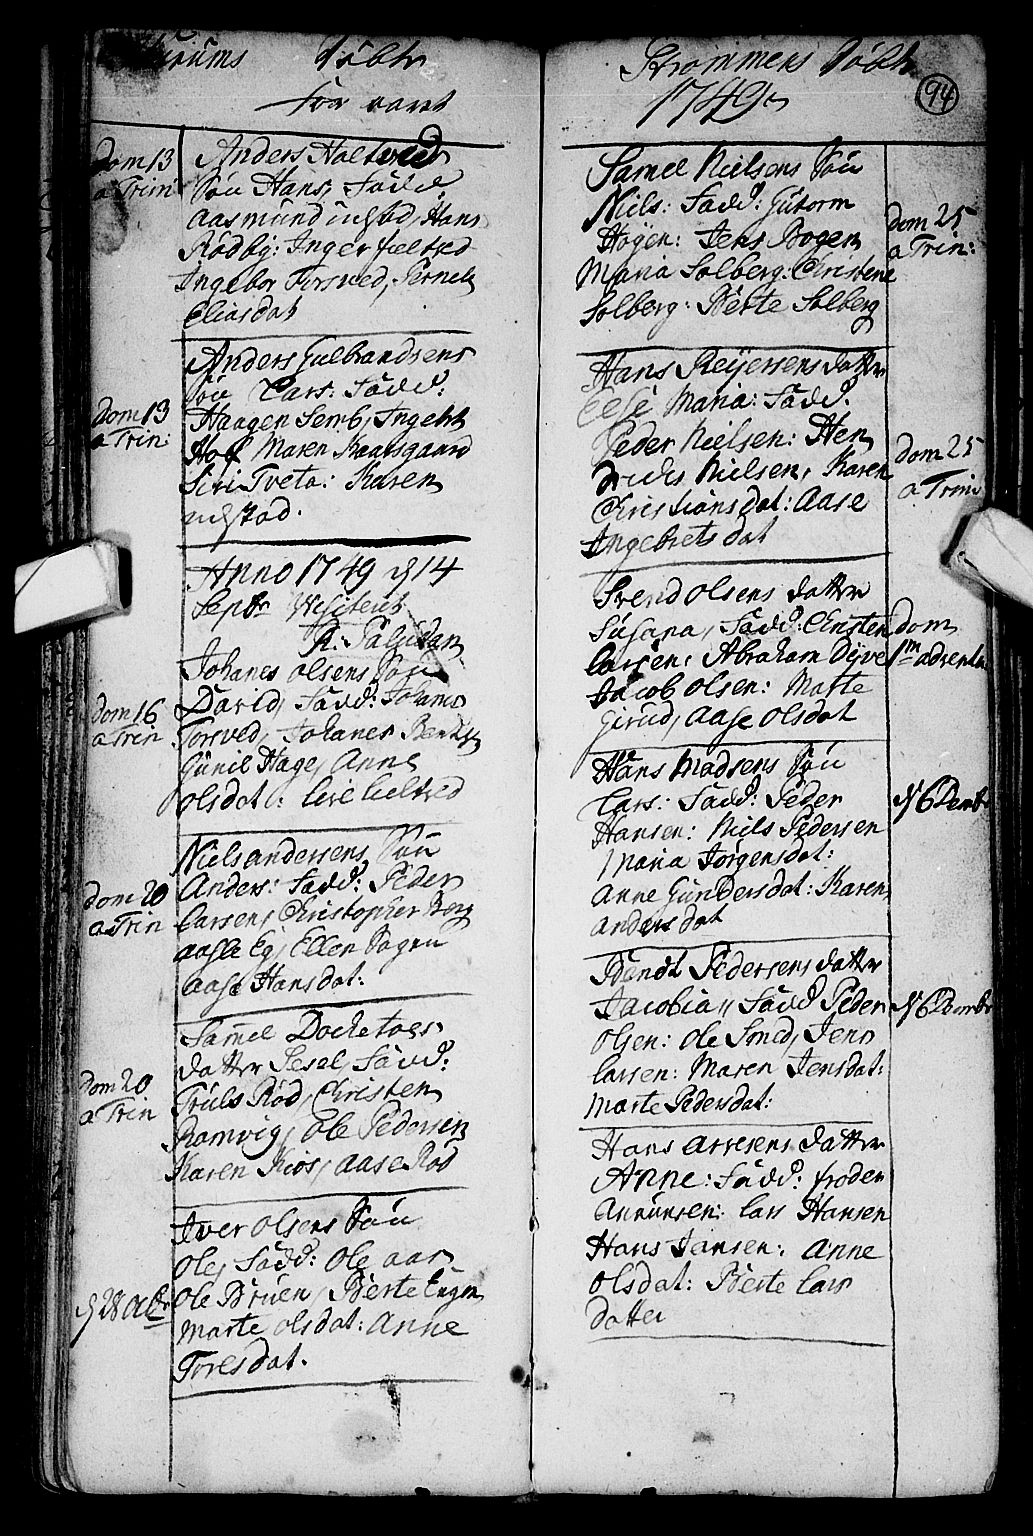 Døbte
for aaret
dom 13
a Trin
Anders Holtved
Søn Hans, Fadd
Aasmund ulstad, Hans
Rødby: Inger
Ingebor Torsved, Pernele
Eliasdat
dom 13
a Trin:
Anders Gulbrandsens
Søn Lars: Fadd:
Haagen Semb, Ingebr
Hof Maren Kaarsgaard
Siri Tveta: Karen
ulstad.
Anno 1749 d 14
Septbr Visiteret
R: Paludan
dom 16
a Trin
Johanes olsens Søn
David, Fadd: Johanes
Torsved, Johanes
Gunil Hage, Anne
olsdat:
dom 20
a Trin
Niels andersens Søn
Anders: Fadd: Peder
Larsen, Christopher Berg
aasle Eg, Ellen Sogen
aase Hansdat:
dom 20
a Trin
Samel
datter Sesel, Fadd:
Truls Rød, Christen
Ramvig, Ole Pedersen
Karen Kios, aase Rød
d 28 octbr
Iver olsens Søn
ole, Fadd: ole aas
ole Bruen, Berte Engen
Marte olsdat: Anne
Toresdat.
Strømmens Døbte
1749
94
dom 25
a Trin:
Samel Nielsens Søn
Niels: Fadd: Gutorm
Høyen: Jens Bogen
Maria Solberg: Christene
Solberg: Berte Solberg
dom 25
a Trin
Hans Reijersens datter
Else Maria: Fadd:
Peder Nielsen: Hen
drich Nielsen, Karen
Christiansdat: Aase
Ingebretsdat
dom
1m advent
Svend olsens datter
Susana, Fadd: Christen
Larsen, Abraham Dyve
Jacob olsen: Marte
Girud, Aase olsdat
d 6 Decembr
Hans Madsens Søn
Lars: Fadd: Peder
Hansen: Niels Pedersen
Maria Jørgensdat:
Anne Gundersdat: Karen
andersdat
d 6 Decembr
Bendt Pedersens datter
Jacobia, Fadd Peder
olsen: ole Smed, Jens
Larsen: Maren Jensdat:
Marte Pedersdat:
Hans arvesens datter
Anne: Fadd: froder
Annunsen: Lars Hansen
Hans Jansen: Anne
olsdat: Berte Lars
datter